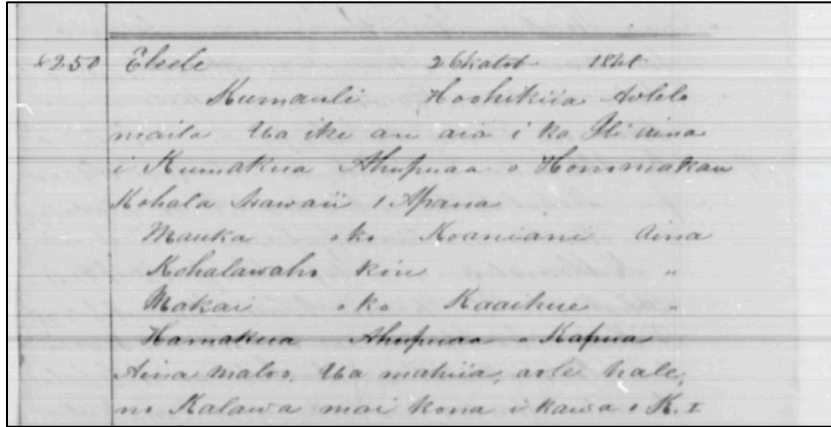 4250 Eleele 26 1848
Kumauli Hoohikiia Aolelo
maila Ua ike au aia i ka Ili aina
i Kumakua Ahupuaa o Honomakau
Kohala Hawaii 1 Apana
Mauka oko Koaniani Aina
Kohalawaho kou "
Makai oko Kaaihue "
Hamakua Ahupuaa o Kapua
Aina maloo, Ua mahiia, aole hale,
no Kalawa mai kona i kawa o K. I